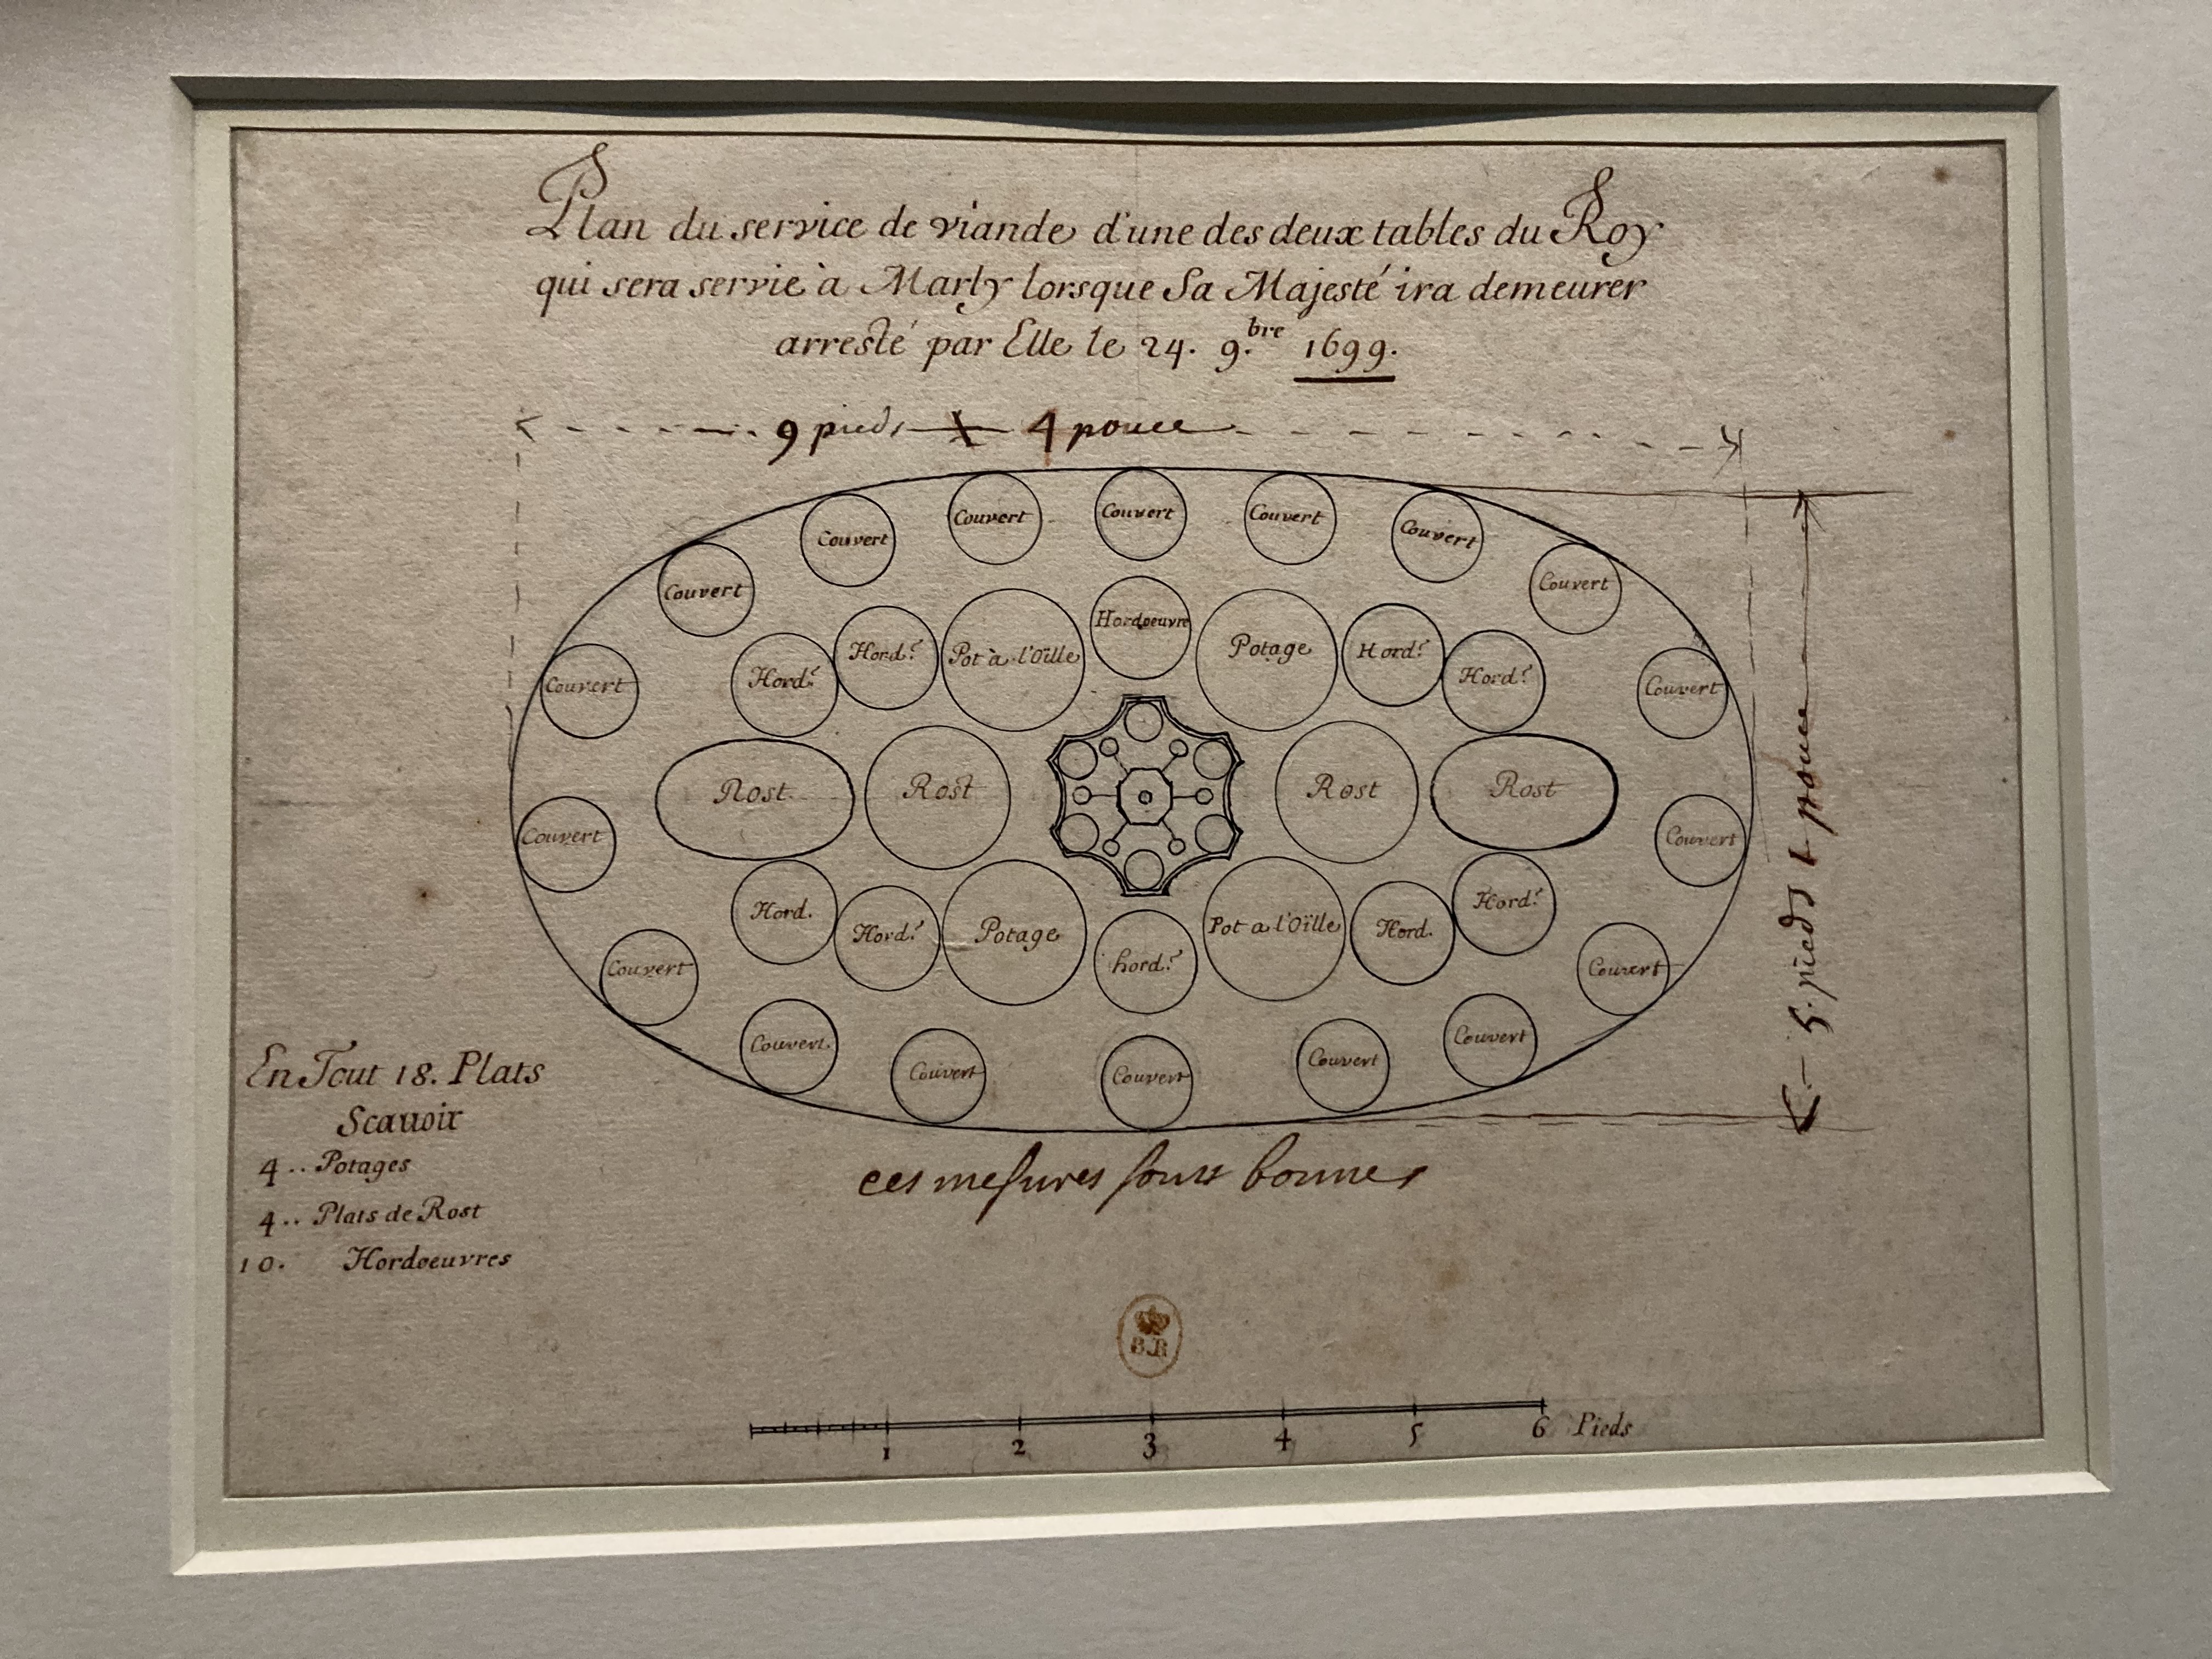 Plan du service de viande d'une des deux tables du Roy
qui sera servie à Marly lorsque Sa Majesté ira demeurer
arresté par Elle le 24. 9.bre 1699.
9 pieds 4 pouce
Couvert
Couvert
Couvert
Couvert
Couvert
Couvert
Couvert
Hordoeuvre
Hord.e
Pot à l'Oïlle
Potage
Hord.e
Hord.e
Hord.e
Couvert
Couvert
Rost.
Rost
Rost
Rost
Couvert
Couvert
5. pieds 1 pouce
Hord.
Hord.e
Potage
hord.e
Pot a l'Oïlle
Hord.
Hord.e
Couvert
Couvert
Couvert.
Couvert
Couvert
Couvert
Couvert
ces mesures sont bonnes
En Tout 18. Plats
Scauoir
4.. Potages
4.. Plats de Rost
10. Hordoeuvres
B.R
1 2 3 4 5 6 Pieds